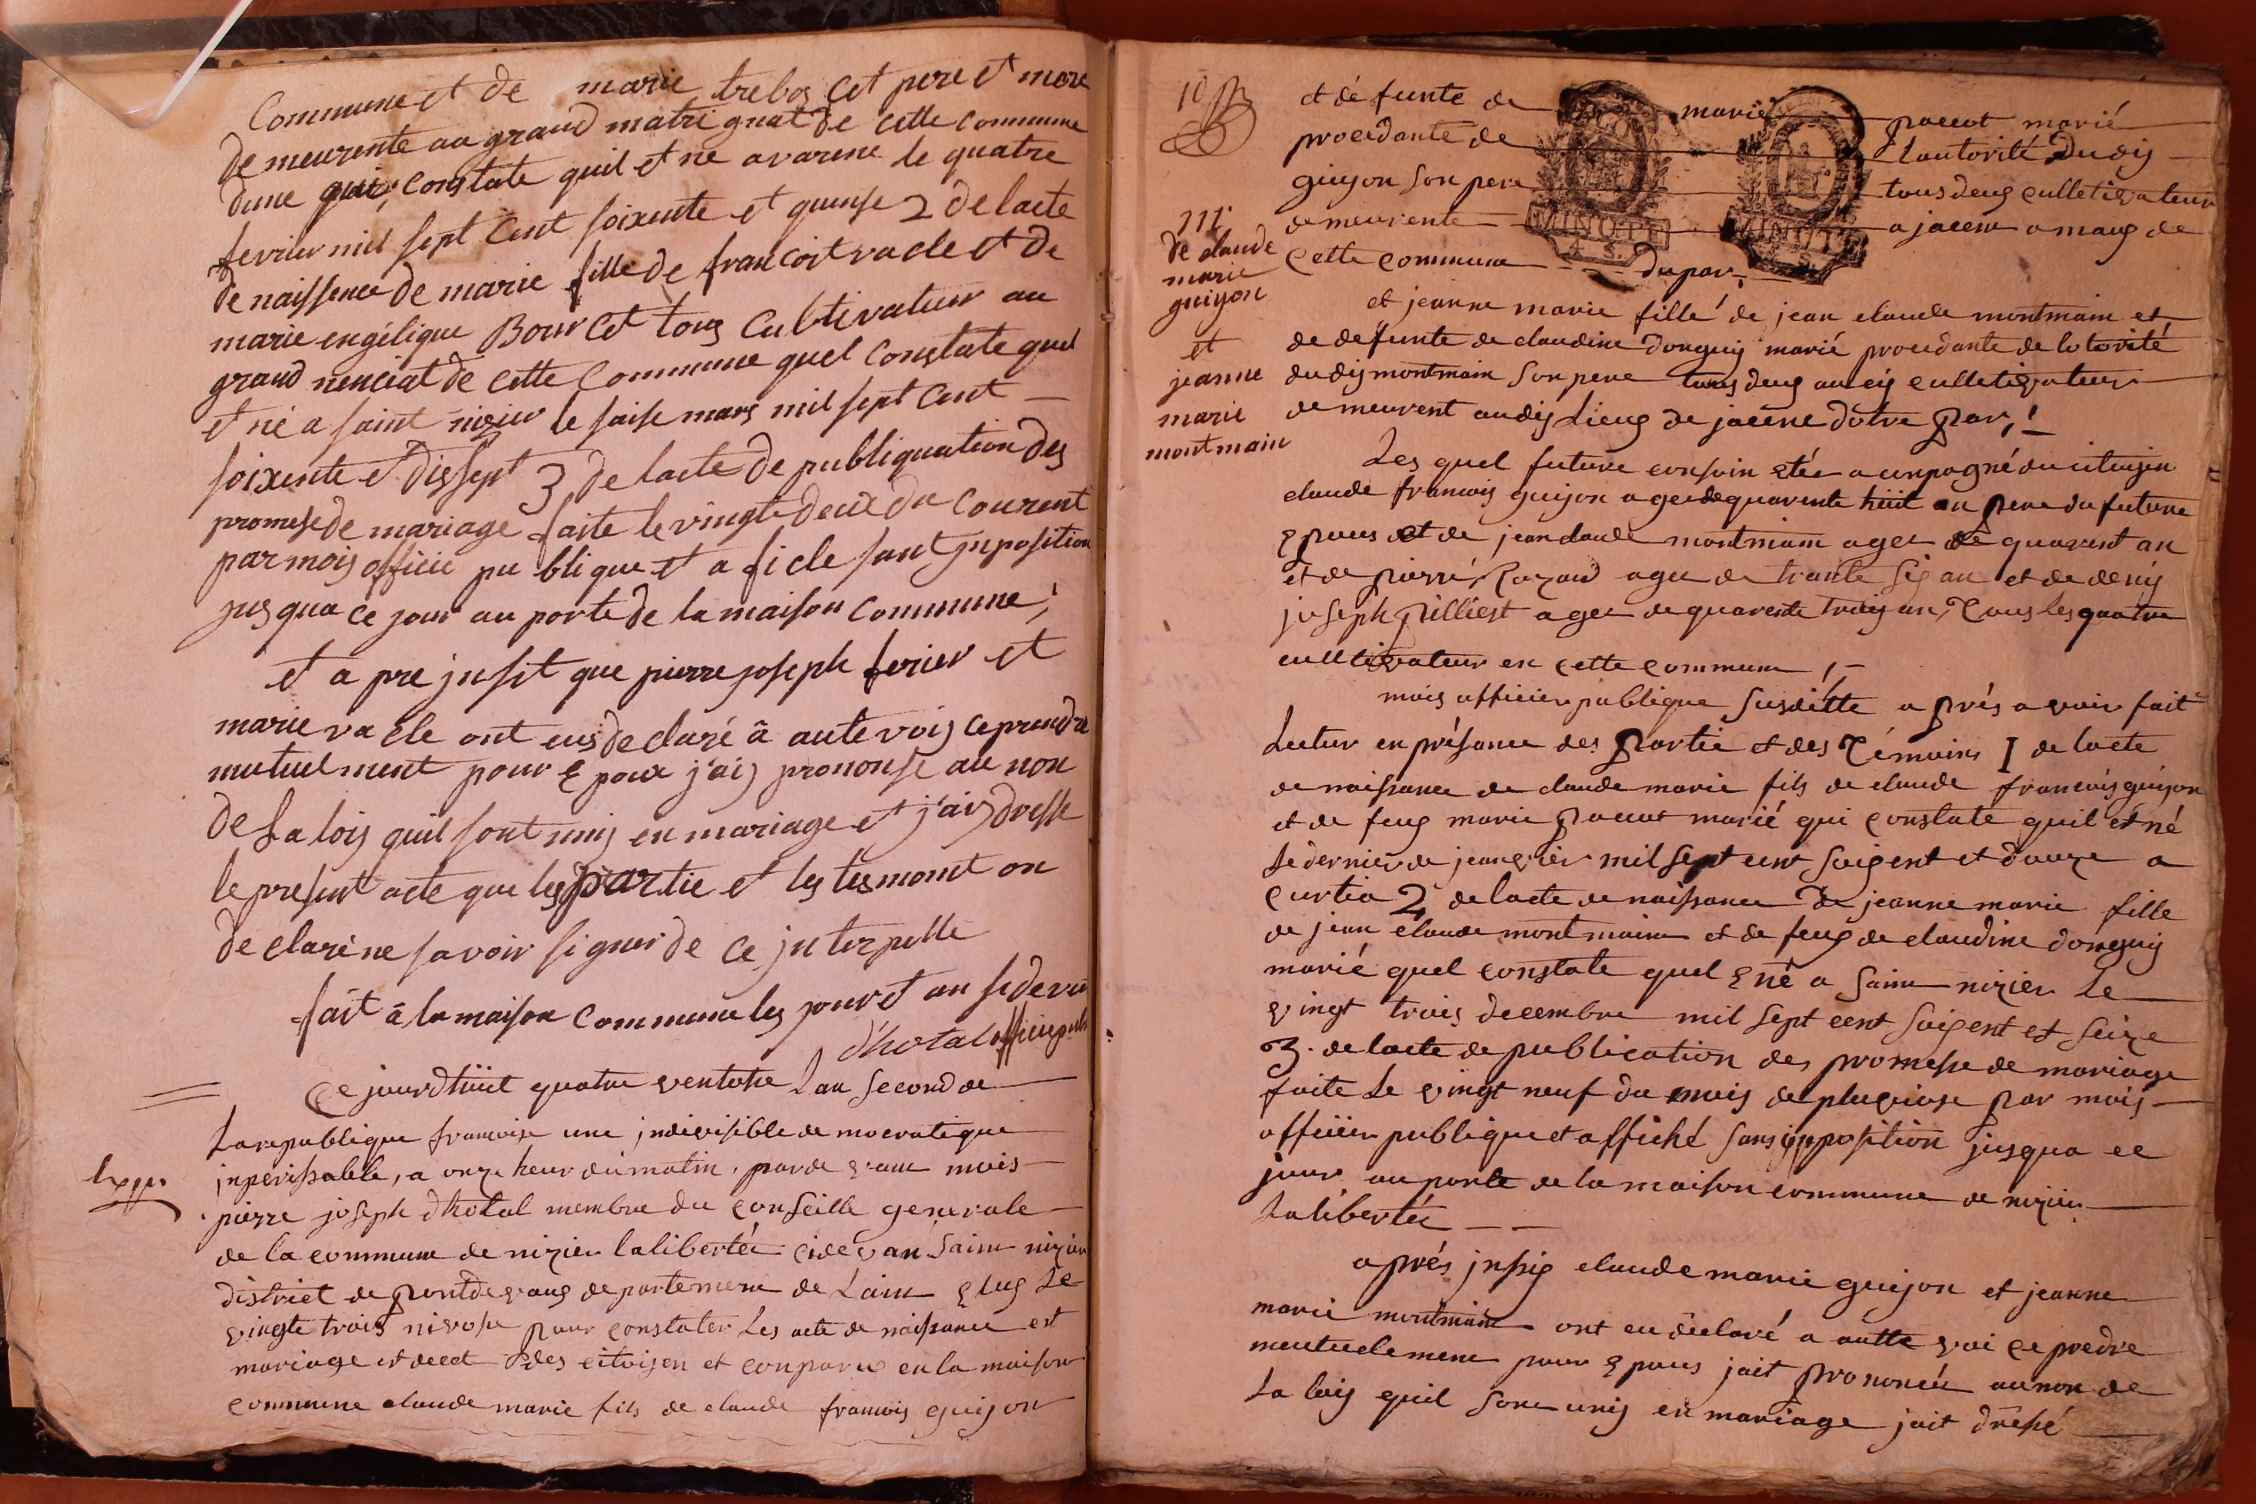 Commune et de marie treboz cet pere et mere
de meurente au grand matri gnat de cette commune
dune constate quil et ne a varene le quatre
fevrier mil sept cent soixente et quense 2 de lacte
de naissence de marie fille de francoit vacle et de
marie engélique Bour cet tous cultivateur au
grand nenciat de cette Commune quel constate quel
et né a saint nizier le saise mars mil sept cent
soixente et dissept 3 de lacte de publiquation des
promese de mariage faite le vingt deux du courent
par mois officie pu blique et a ficle sant jnposition
jus qua ce jour au porte de la maison commune;
et a pre jusit que pierre joseph ferier et
marie va cle ont eus de claré a aute vois ce prendre
mutuel ment pour epoux j'ais prononse au non
de la lois quil sont unis en mariage et j'ais dresse
le present acte que les partie et les tesmoint on
de claré ne savoir signer de ce jnterpelle
fait a la maison Commune les jour et an si devan
d'hotal officie pub
Ce jourdhuit quatre ventose Lan second de
La republique francoise une jndivisible de mocratique
jnperissable, a onze heur du matin, par de vant mois
pierre joseph dhotal membre du conseille generale
de la commune de nizier laliberteé cide van Saint nizier
district de pontdevaux de partement de Lain elus Le
vingte trois nivose pour constater Les acte de naissance est
mariage et decet des citoisen et conparu en la maison
commune claude marie fils de claude francois guijon
10
et dé funte de marie paccot marié
procedante de Lautorité Dudis
guijon son pere tous deux culletivateur
de meurente a jacene a maux de
cette commune dupar
111e
de claude
marie
guijon
et
jeanne
marie
montmain
et jeanne marie fille de jean claude montmain et
de defunte de claudine donguy marié procedante de lotorité
dudis montmain son pere tous deux aucis culletivateur
de meurent audis Lieux de jacene dotre par,
Les quel future conjoin etée acunpagné du citoijen
claude francois guijon agee de quarente huit an pere du future
epoux et de jean claude montmain agee de quarent an
et de pierre agee de trante sis an et de denis
joseph pilliest agee de quarente trois an, tous les quatre
culltivateur en cette commune,
mois officier publique susditte aprés avoir fait
Lectur en présance des partie et des témoins I de lacte
de naissance de claude marie fils de claude francois guijon
et de feux marie pacout marié qui constate quil et né
Le dernier de jeanvier mil sept cent soixent et douze a
curtia 2 de lacte de naissance de jeanne marie fille
de jean claude montmain et de feux de claudine donguy
marié quel constate quel e né a saint nizier Le
vingt trois decembre mil sept cent soixent et seize
3. de lacte de publication des promesse de mariage
faite Le vingt neuf du mois de pluviose par mois
officier publique et affiché sans opposition jusqua ce
jour au porte de la maison commune de nizier
Laliberteé
aprés jnsis claude marie guijon et jeanne
marie montmain ont eu déclaré a autte voi ce predre
meutuelement pour epoux jait prononcée aunon de
La lois quil sont unis en mariage jait dréssé